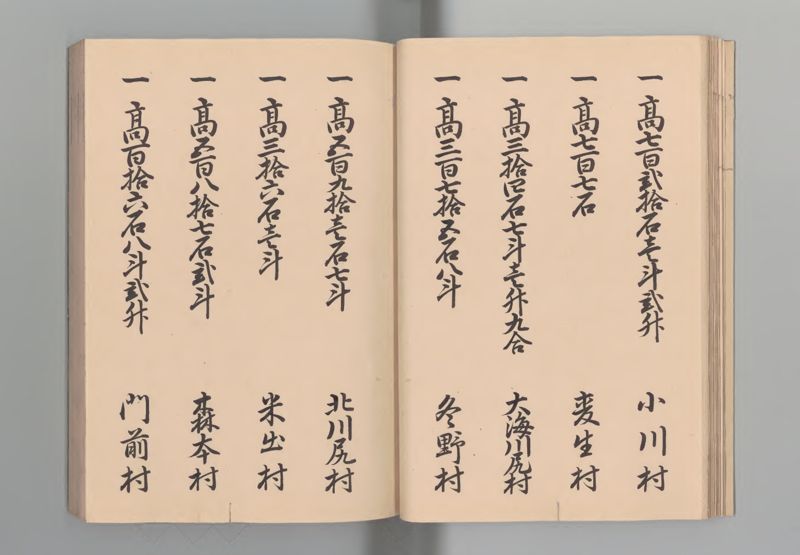 一 高七百弐拾石壱斗弐升 小川村
一 高七百七石 麦生村
一 高三拾四石七斗壱升九合 大海川尻村
一 高三百七拾五石八斗 冬野村
一 高五百九拾壱石七斗 北川尻村
一 高三拾六石壱斗 米出村
一 高五百八拾七石弐斗 森本村
一 高百拾六石八斗弐升 門前村